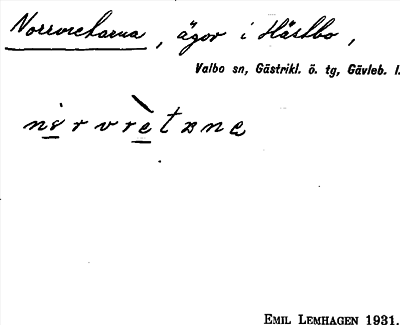 Norrvretarna, ägor i Hästbo,
Valbo sn, Gästrikl. ö. tg, Gävleb. l.
EMIL LEMHAGEN 1931.